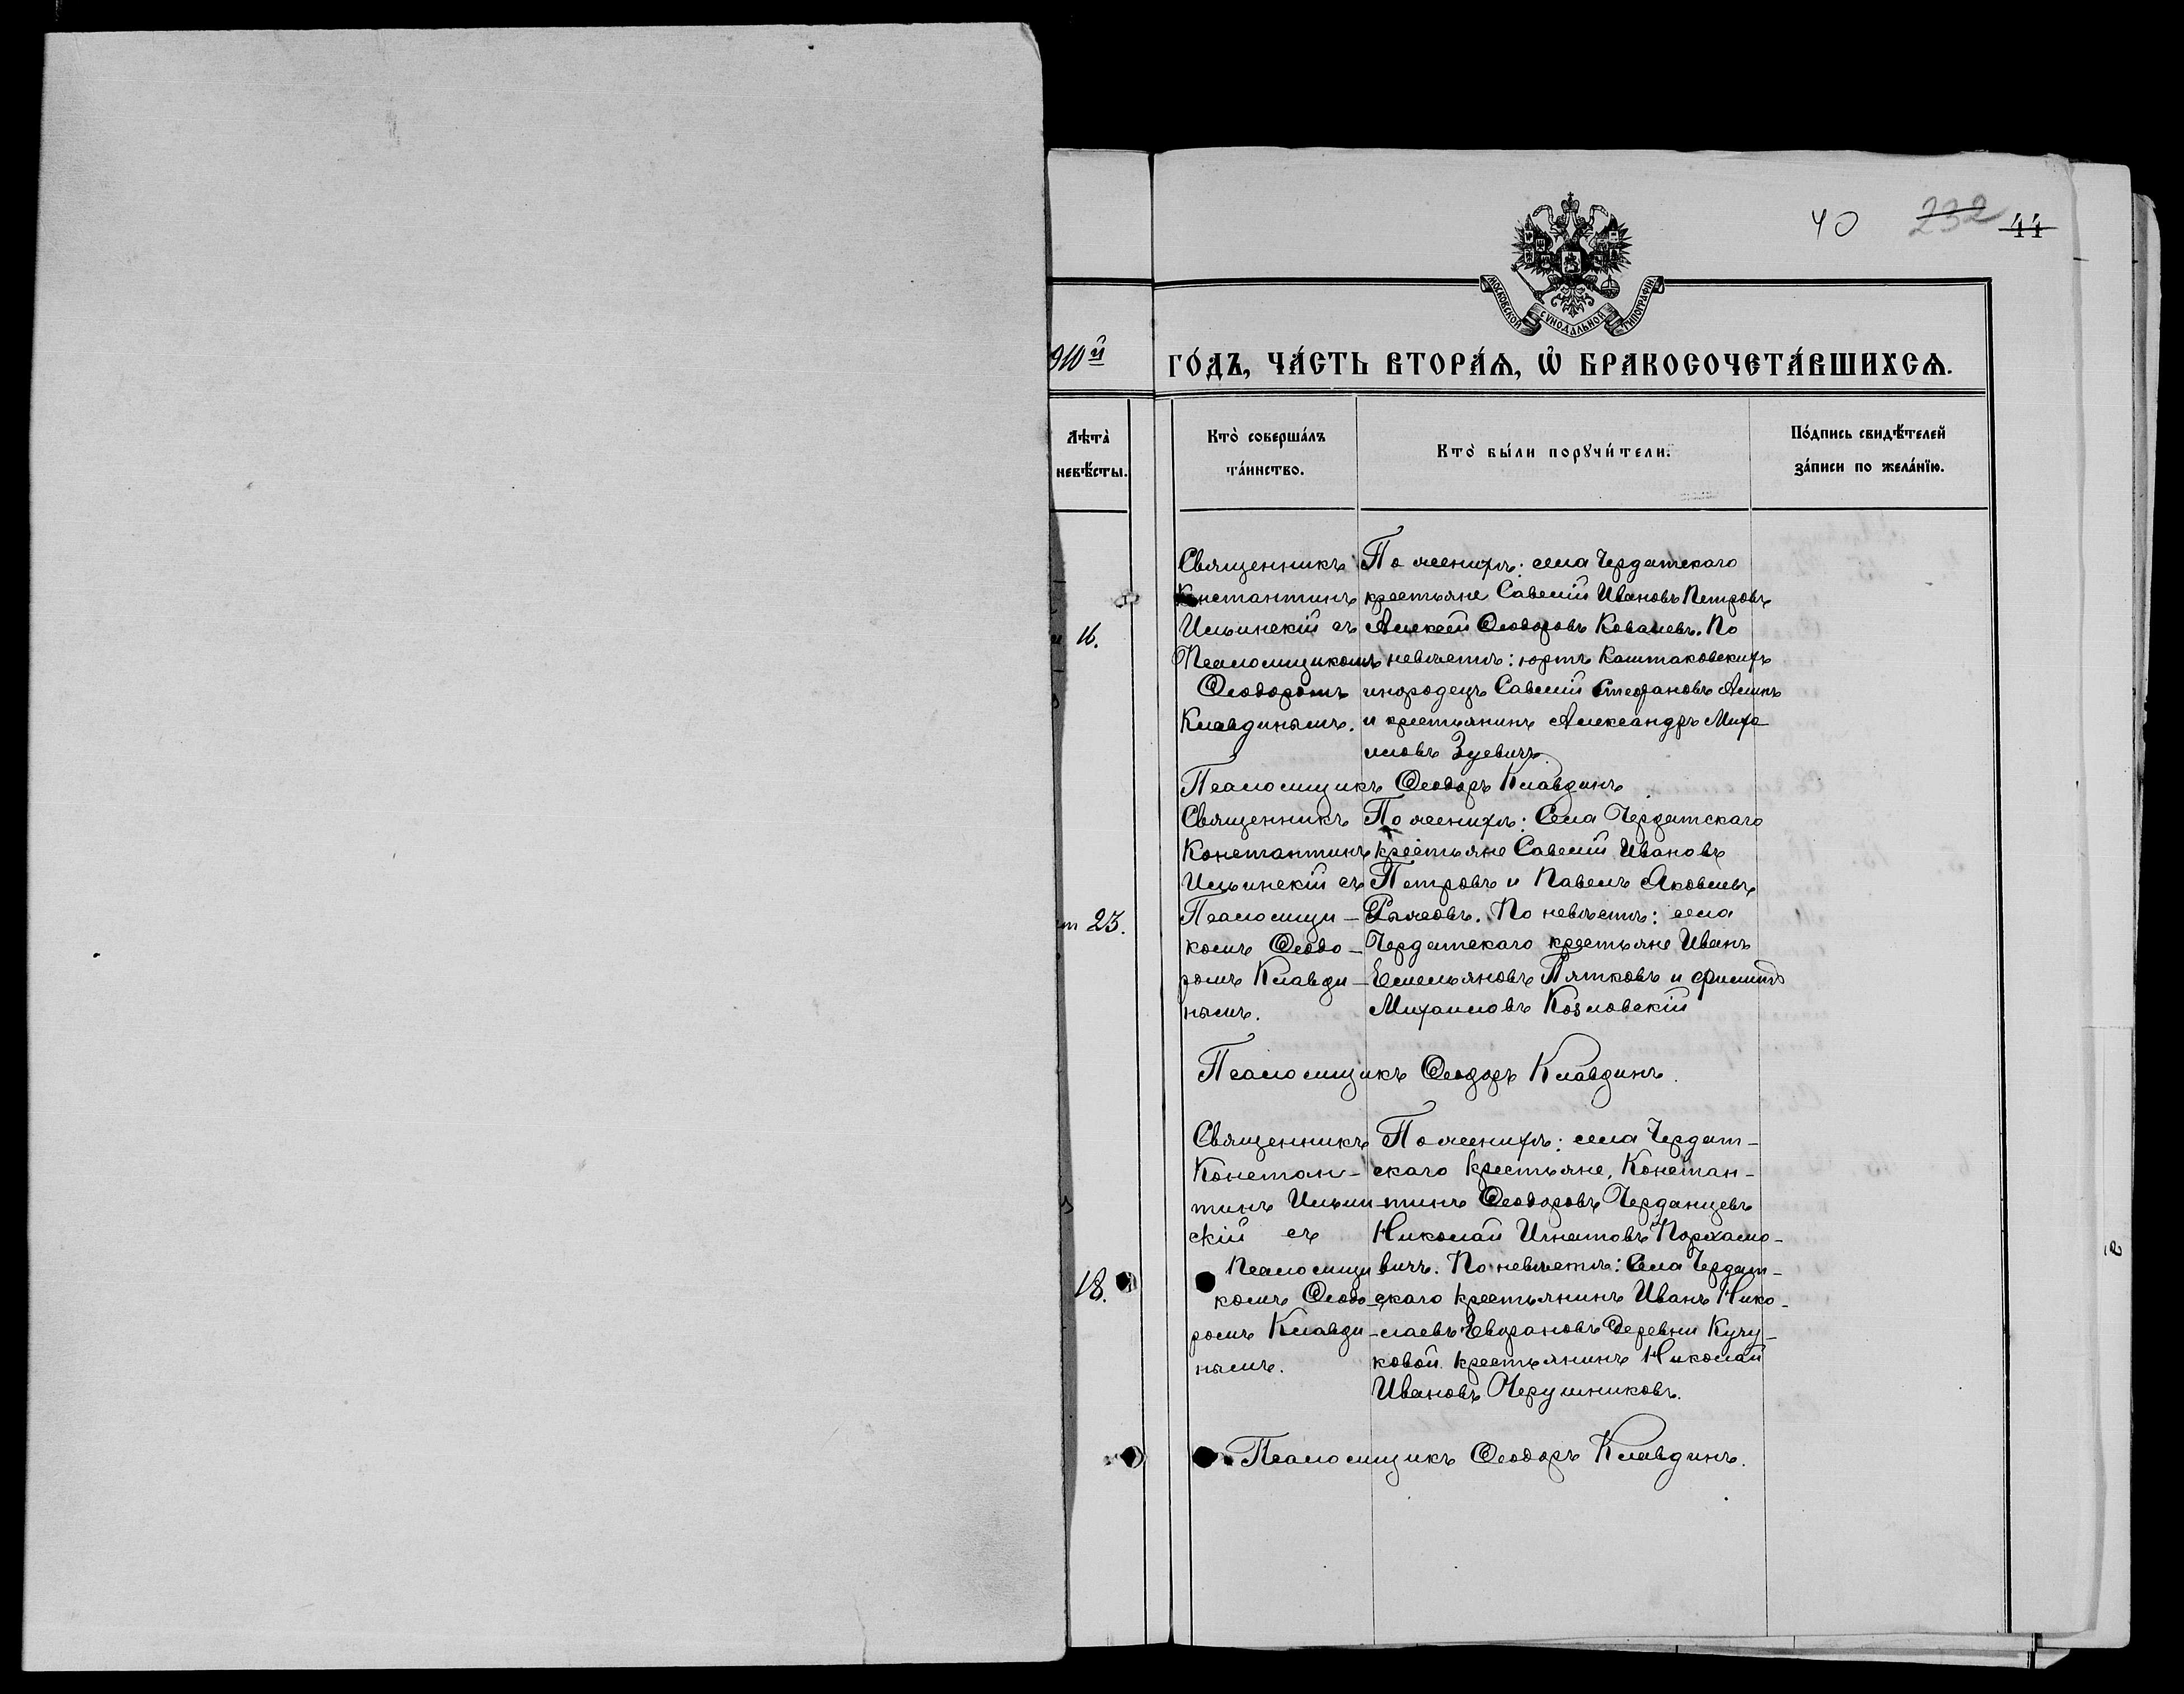 40 232 44
МОСКОВСКОЙ СѴНОДАЛЬНОЙ ТИПОГРАФІИ
910й
ГО́ДЪ, ЧА́СТЬ ВТОРА́Ѧ, Ѽ БРАКОСОЧЕТА́ВШИХСѦ.
Лѣта̀
невѣ́сты.
Кто̀ соверша́лъ
та́инство.
Кто̀ бы́ли порꙋчи́тели.
По́дпись свидѣ́телей
за́писи по жела́нїю.
16.
Священникъ
Константинъ
Ильинскій съ
Псаломщикомъ
Ѳеодоромъ
Клавдинымъ.
По женихѣ: села Чердатскаго
крестьяне Савелій Ивановъ Петровъ
Алексей Ѳеодоровъ Ковалевъ. По
невѣстѣ: юртъ Каштаковскихъ
инородецъ Савелій Стефановъ
и крестьянинъ Александръ Миха
иловъ Зуевичъ.
Псаломщикъ Ѳеодоръ Клавдинъ
23.
Священникъ
Константинъ
Ильинскій съ
Псаломщи-
комъ Ѳеодо-
ромъ Клавди-
нымъ.
По женихѣ: Села Чердатскаго
крестьяне Савелій Ивановъ
Петровъ и Павелъ Яковлевъ
Рыжовъ. По невѣстѣ: села
Чердатскаго крестьяне Иванъ
Емельяновъ Пятковъ и Филиппъ
Михаиловъ Козловскій
Псаломщикъ Ѳеодоръ Клавдинъ.
18.
Священникъ
Констан-
тинъ Ильин
скій съ
Псаломщи
комъ Ѳеодо-
ромъ Клавди-
нымъ.
По женихѣ: села Чердат-
скаго крестьяне, Констан-
тинъ Ѳеодоровъ Черданцевъ
Николай Игнатовъ
вичъ. По невѣстѣ: Села Чердат-
скаго крестьянинъ Иванъ Нико-
лаевъ деревни Кучу-
ковой крестьянинъ Николай
Ивановъ Черушниковъ.
Псаломщикъ Ѳеодоръ Клавдинъ.